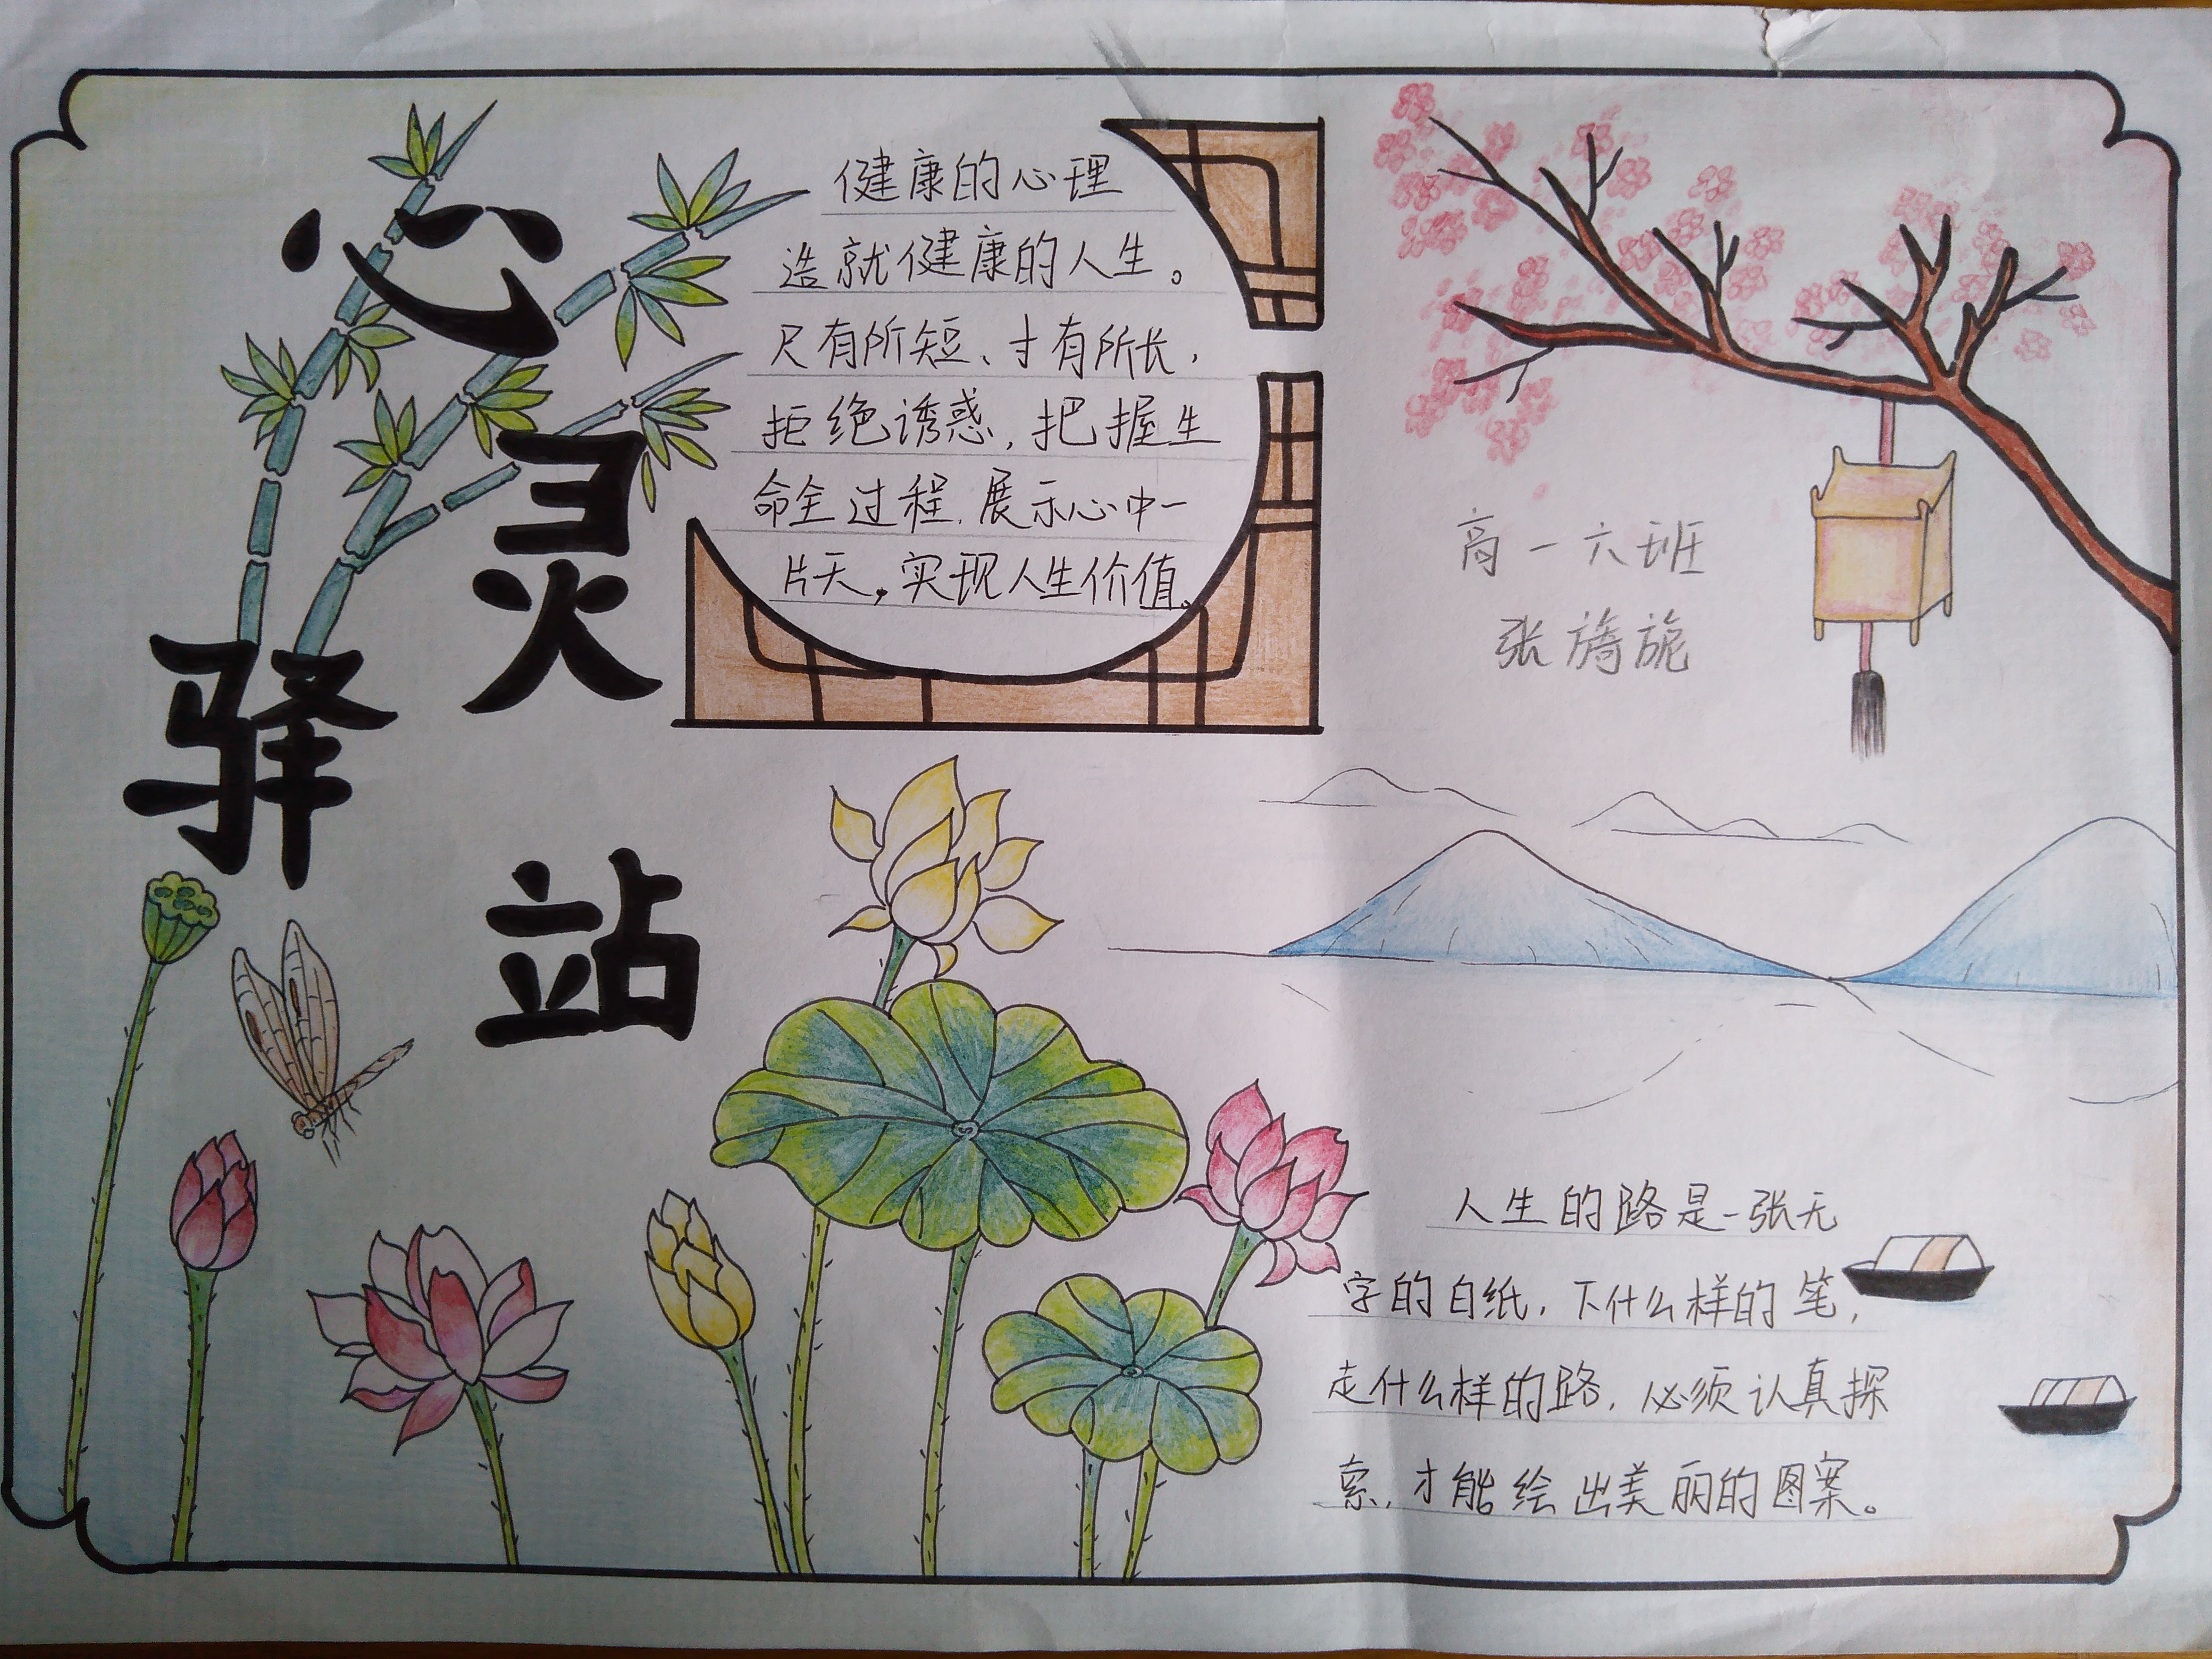 心灵
驿站
健康的心理
造就健康的人生。
尺有所短、寸有所长,
拒绝诱惑,把握生
命全过程,展示心中一
片天,实现人生价值。
高一六班
张旖旎
人生的路是一张无
字的白纸,下什么样的笔,
走什么样的路,必须认真探
索,才能绘出美丽的图案。